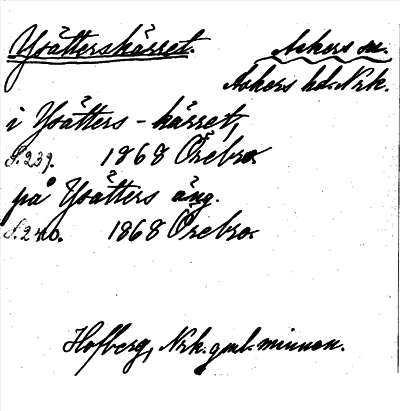 Ysätterskärret. Askers sn.
Askers hd. Nrk.
i Ysätters-kärret,
S. 239. 1868 Örebro
på Ysätters äng.
S. 240. 1868 Örebro.
Hofberg, Nrk. gml. minnen.